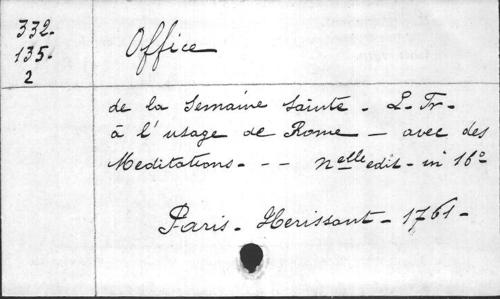 332.
135.
2
Office
de la Semaine Sainte - L-Fr-
à l'usage de Rome - avec des
Meditations - - - Nelle edit - in 16°
Paris - Herissant - 1761 -